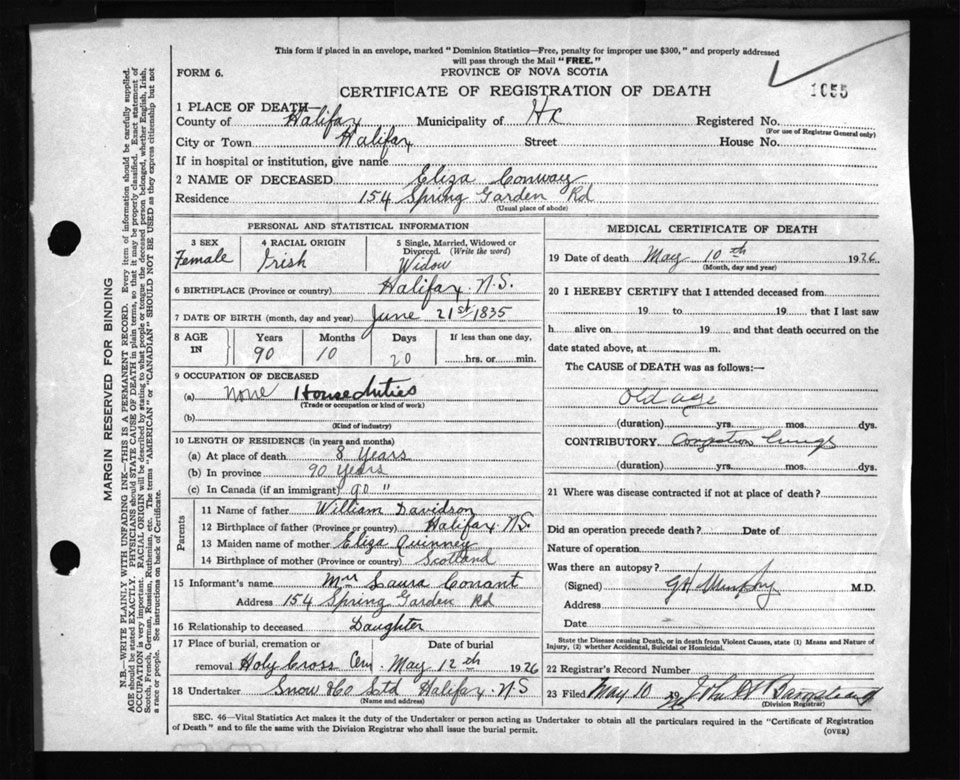 This form if placed in an envelope, marked "Dominion Statistics—Free, penalty for improper use $300," and properly addressed
will pass through the Mail "FREE."
FORM 6.
PROVINCE OF NOVA SCOTIA
CERTIFICATE OF REGISTRATION OF DEATH
1055
1 PLACE OF DEATH—
County of Halifax Municipality of Hx Registered No.
(For use of Registrar General only)
City or Town Halifax Street House No.
If in hospital or institution, give name
2 NAME OF DECEASED Eliza Conway
Residence 154 Spring Garden Rd
(Usual place of abode)
PERSONAL AND STATISTICAL INFORMATION
3 SEX 4 RACIAL ORIGIN 5 Single, Married, Widowed or
Divorced. (Write the word)
Female Irish Widow
6 BIRTHPLACE (Province or country) Halifax N.S.
7 DATE OF BIRTH (month, day and year) June 21st 1835
8 AGE IN Years Months Days If less than one day,
90 10 20 hrs. or min.
9 OCCUPATION OF DECEASED
(a) none House duties
(Trade or occupation or kind of work)
(b)
(Kind of industry)
10 LENGTH OF RESIDENCE (in years and months)
(a) At place of death 8 Years
(b) In province 90 Years
(c) In Canada (if an immigrant) 90 "
Parents
11 Name of father William Davidson
12 Birthplace of father (Province or country) Halifax N.S.
13 Maiden name of mother Eliza Quinney
14 Birthplace of mother (Province or country) Scotland
15 Informant's name Mrs Laura Conant
Address 154 Spring Garden Rd
16 Relationship to deceased Daughter
17 Place of burial, cremation or Date of burial
removal Holy Cross Cem May 12th 1926
18 Undertaker Snow & Co Ltd Halifax N.S
(Name and address)
MEDICAL CERTIFICATE OF DEATH
19 Date of death May 10th 1926
(Month, day and year)
20 I HEREBY CERTIFY that I attended deceased from
19 to 19 that I last saw
h alive on 19 and that death occurred on the
date stated above, at m.
The CAUSE of DEATH was as follows:—
Old age
(duration) yrs. mos. dys.
CONTRIBUTORY Congestion Lungs
(duration) yrs. mos. dys.
21 Where was disease contracted if not at place of death?
Did an operation precede death? Date of
Nature of operation
Was there an autopsy?
(Signed) G H Murphy M.D.
Address
Date
State the Disease causing Death, or in death from Violent Causes, state (1) Means and Nature of
Injury, (2) whether Accidental, Suicidal or Homicidal.
22 Registrar's Record Number
23 Filed May 10 1926
(Division Registrar)
SEC. 46—Vital Statistics Act makes it the duty of the Undertaker or person acting as Undertaker to obtain all the particulars required in the "Certificate of Registration
of Death" and to file the same with the Division Registrar who shall issue the burial permit.
(OVER)
MARGIN RESERVED FOR BINDING
N.B.—WRITE PLAINLY WITH UNFADING INK—THIS IS A PERMANENT RECORD. Every item of information should be carefully supplied.
AGE should be stated EXACTLY. PHYSICIANS should STATE CAUSE OF DEATH in plain terms, so that it may be properly classified. Exact statement of
OCCUPATION is very important. RACIAL ORIGIN will be described by stating to what people or tongue the deceased person belonged, whether English, Irish,
Scotch, French, German, Russian, Ruthenian, etc. The terms "AMERICAN" or "CANADIAN" SHOULD NOT BE USED as they express citizenship but not
a race or people. See instructions on back of Certificate.